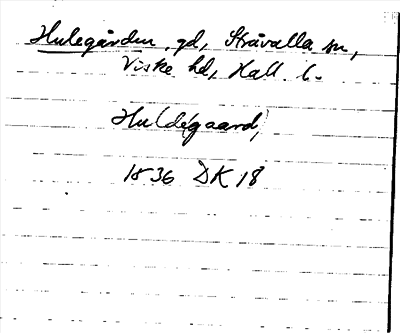 Hulegården, gd, Stråvalla sn,
Viske hd, Hall. l.
Hu(de)gaard,
1836 DK 18